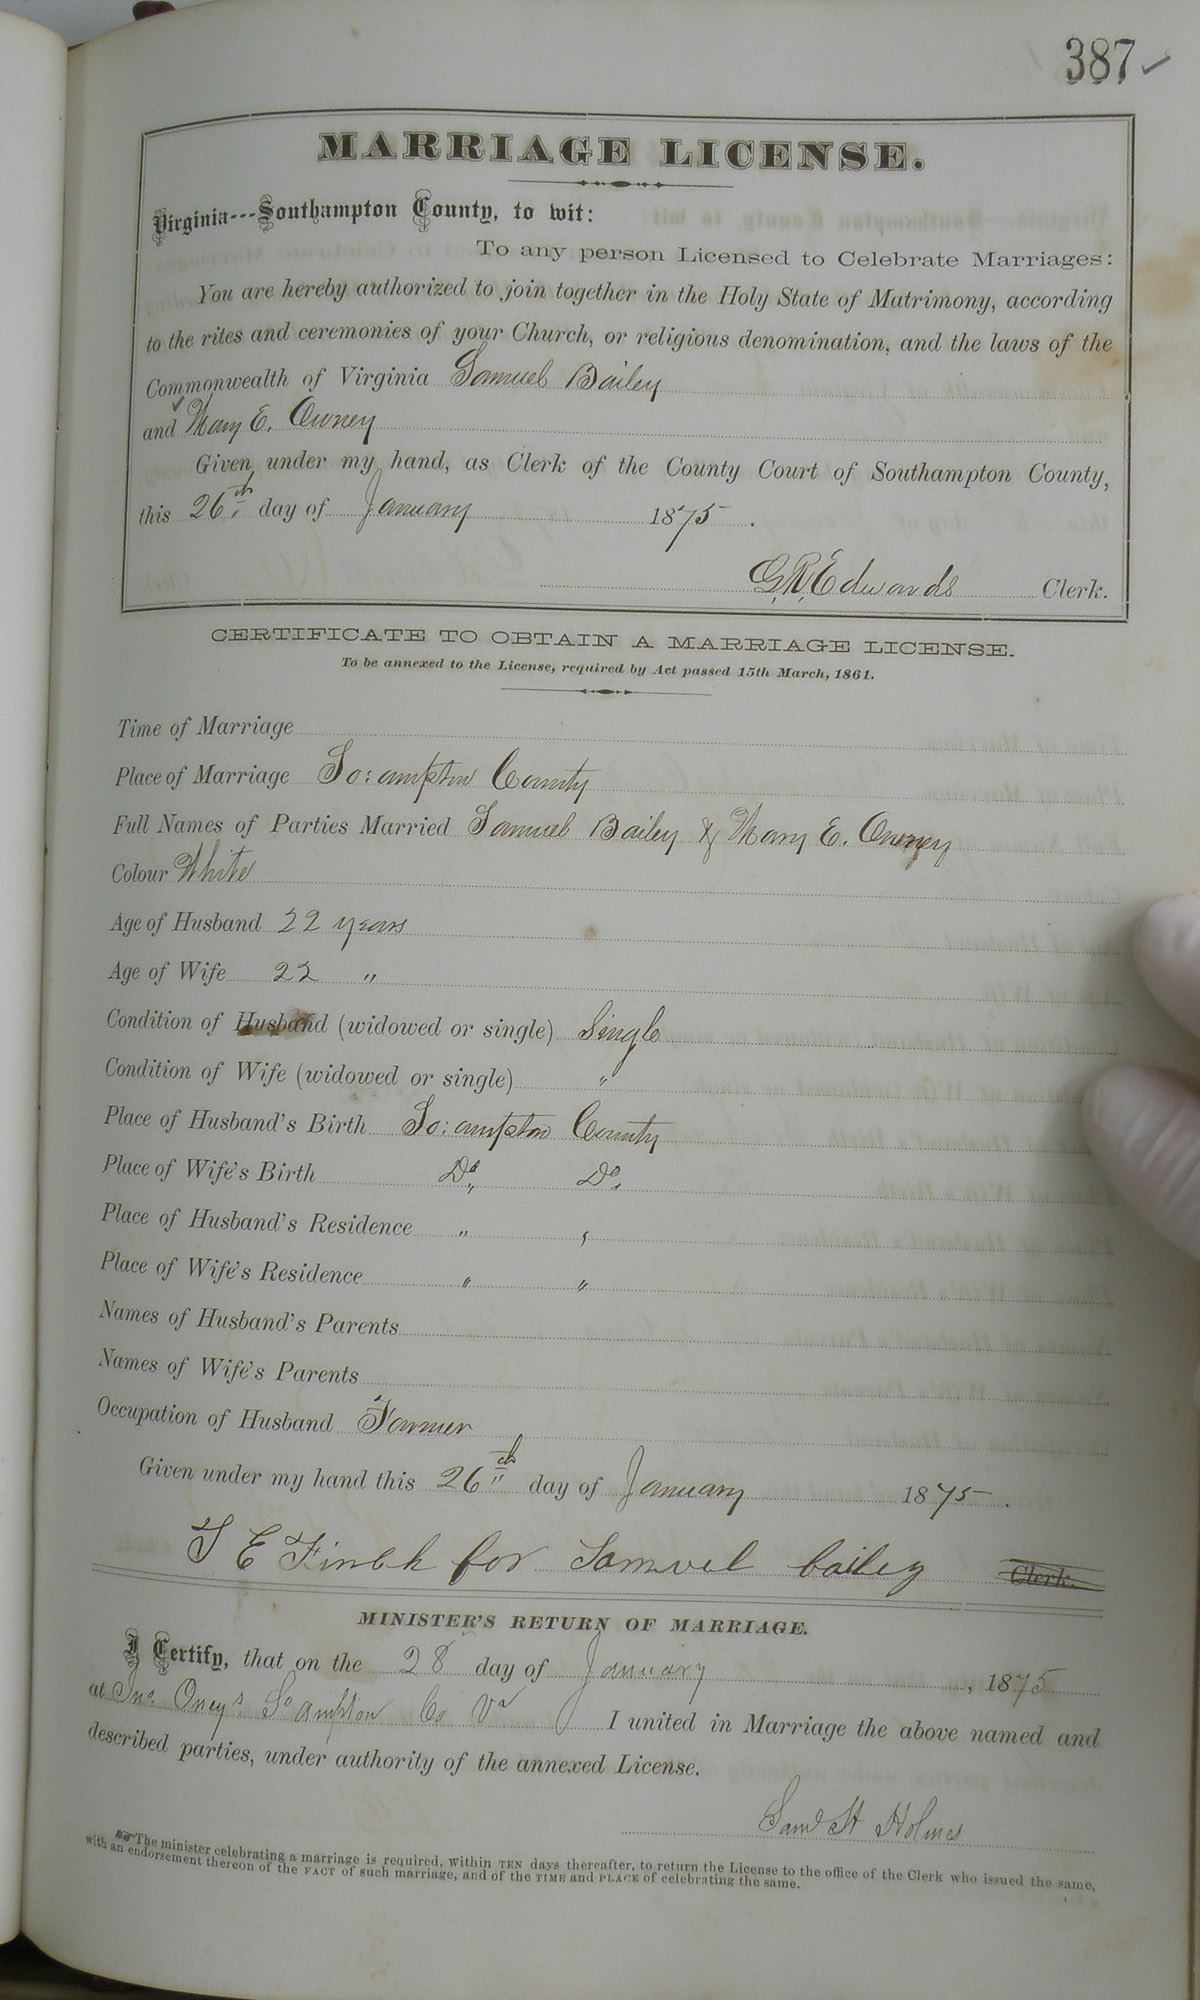 387 ✓
MARRIAGE LICENSE.
Virginia---Southampton County, to wit:
To any person Licensed to Celebrate Marriages:
You are hereby authorized to join together in the Holy State of Matrimony, according
to the rites and ceremonies of your Church, or religious denomination, and the laws of the
Commonwealth of Virginia Samuel Bailey
and Mary E. Owney
Given under my hand, as Clerk of the County Court of Southampton County,
this 26th day of January 1875.
G.R. Edwards Clerk.
CERTIFICATE TO OBTAIN A MARRIAGE LICENSE.
To be annexed to the License, required by Act passed 15th March, 1861.
Time of Marriage
Place of Marriage So:ampton County
Full Names of Parties Married Samuel Bailey & Mary E. Owney
Colour White
Age of Husband 22 years
Age of Wife 22 "
Condition of Husband (widowed or single) Single
Condition of Wife (widowed or single) "
Place of Husband's Birth So:ampton County
Place of Wife's Birth Do Do
Place of Husband's Residence " "
Place of Wife's Residence " "
Names of Husband's Parents
Names of Wife's Parents
Occupation of Husband Farmer
Given under my hand this 26th day of January 1875.
T E Finch for Samuel bailey Clerk.
MINISTER'S RETURN OF MARRIAGE.
I Certify, that on the 28 day of January, 1875
at Jno. Oney's So ampton Co Va I united in Marriage the above named and
described parties, under authority of the annexed License.
Saml H Holmes
The minister celebrating a marriage is required, within TEN days thereafter, to return the License to the office of the Clerk who issued the same,
with an endorsement thereon of the FACT of such marriage, and of the TIME and PLACE of celebrating the same.